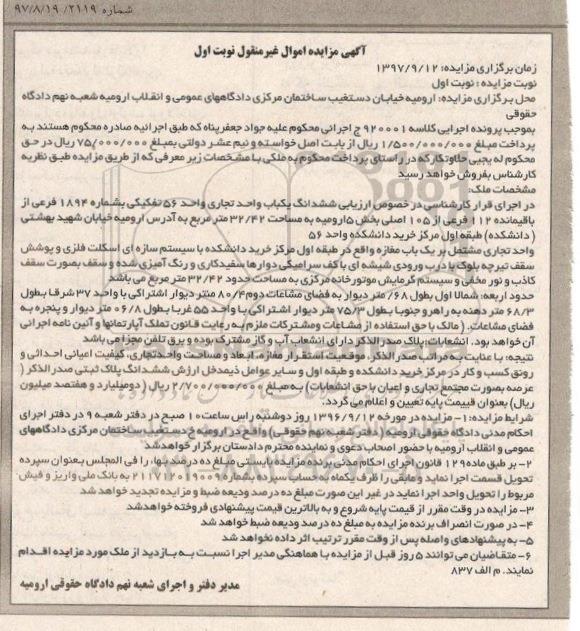 شماره ۲۱۱۹/ ۹۷/۸/۱۹
آگهی مزایده اموال غیرمنقول نوبت اول
زمان برگزاری مزایده: ۱۳۹۷/۹/۱۲
نوبت مزایده : نوبت اول
محل برگزاری مزایده: ارومیه خیابان دستغیب ساختمان مرکزی دادگاههای عمومی و انقلاب ارومیه شعبه نهم دادگاه
حقوقی
بموجب پرونده اجرایی کلاسه ۹۲۰۰۰۱ ج اجرائی محکوم علیه جواد جعفرپناه که طبق اجرائیه صادره محکوم هستند به
پرداخت مبلغ ۱/۵۰۰/۰۰۰/۰۰۰ ریال از بابت اصل خواسته و نیم عشر دولتی بمبلغ ۷۵/۰۰۰/۰۰۰ ریال در حق
محکوم له یحیی حلاوتکار که در راستای پرداخت محکوم به ملکی با مشخصات زیر معرفی که از طریق مزایده طبق نظریه
کارشناس بفروش خواهد رسید
مشخصات ملک:
در اجرای قرار کارشناسی در خصوص ارزیابی ششدانگ یکباب واحد تجاری واحد ۵۶ تفکیکی بشماره ۱۸۹۴ فرعی از
باقیمانده ۱۱۲ فرعی از ۱۰۵ اصلی بخش ۵ ارومیه به مساحت ۳۲/۴۲ متر مربع به آدرس ارومیه خیابان شهید بهشتی
( دانشکده) طبقه اول مرکز خرید دانشکده واحد ۵۶
واحد تجاری مشتمل بر یک باب مغازه واقع در طبقه اول مرکز خرید دانشکده با سیستم سازه ای اسکلت فلزی و پوشش
سقف تیرچه بلوک با درب ورودی شیشه ای با کف سرامیکی دیوارها سفیدکاری و رنگ آمیزی شده و سقف بصورت سقف
کاذب و نور مخفی و سیستم گرمایش موتور خانه مرکزی به مساحت حدود ۳۲/۴۲ متر مربع می باشد
حدود اربعه: شمالا اول بطول ۶۸/ متر دیوار به فضای مشاعات دوم ۸۰/۴ متر دیوار اشتراکی با واحد ۳۷ شرقا بطول
۶۸/۳ متر دهنه به راهرو جنوبا بطول ۷۵/۳ متر دیوار اشتراکی با واحد ۵۵ غربا بطول ۰۶/۸ متر دیوار و پنجره به
فضای مشاعات. ( مالک با حق استفاده از مشاعات ومشترکات ملزم به رعایت قانون تملک آپارتمانها و آئین نامه اجرائی
آن خواهد بود. انشعابات:پلاک صدر الذکر دارای انشعاب آب و گاز مشترک بوده و برق تلفن مجزا می باشد
نتیجه: با عنایه به مراتب صدر الذکر ، موقعیت استقرار مغازه، ابعاد و مساحت واحد تجاری، کیفیت اعیانی احداثی و
رونق کسب و کار در مرکز خرید دانشکده و طبقه اول و سایر عوامل ذیمدخل ارزش ششدانگ پلاک ثبتی صدر الذکر (
عرصه بصورت مجتمع تجاری و اعیان با حق انشعابات) به مبلغ ۲/۷۰۰/۰۰۰/۰۰۰ ریال (دومیلیارد و هفتصد میلیون
ریال) بعنوان قیمت پایه تعیین و اعلام می گردد.
شرایط مزایده: ۱- مزایده در مورخه ۱۳۹۶/۹/۱۲ روز دوشنبه راس ساعت ۱۰ صبح در دفتر شعبه ۹ در دفتر اجرای
احکام مدنی دادگاه حقوقی ارومیه (دفتر شعبه نهم حقوقی) واقع در ارومیه خ دستغیب ساختمان مرکزی دادگاههای
عمومی و انقلاب ارومیه با حضور اصحاب دعوی و نماینده محترم دادستان برگزار خواهدشد
۲- بر طبق ماده ۱۲۹ قانون اجرای احکام مدنی برنده مزایده بایستی مبلغ ده درصد بها، را فی المجلس بعنوان سپرده
تحویل قسمت اجرا نماید و مابقی را ظرف یکماه به حساب سپرده بشماره ۲۱۷۱۲۰۱۹۰۰۹ به بانک ملی واریز و فیش
مربوط را تحویل واحد اجرا نماید در غیر این صورت مبلغ ده درصد ودیعه ضبط و مزایده تجدید خواهد شد
۳- مزایده در وقت مقرر از قیمت پایه شروع و به بالاترین قیمت پیشنهادی فروخته خواهدشد
۴- در صورت انصراف برنده مزایده به مبلغ ده درصد ودیعه ضبط خواهد شد
۵- به پیشنهادهای واصله پس از وقت مقرر ترتیب اثر داده نخواهد شد
۶- متقاضیان می توانند ۵ روز قبل از مزایده با هماهنگی مدیر اجرا نسبت به بازدید از ملک مورد مزایده اقدام
نمایند. م الف ۸۳۷
مدیر دفتر و اجرای شعبه نهم دادگاه حقوقی ارومیه